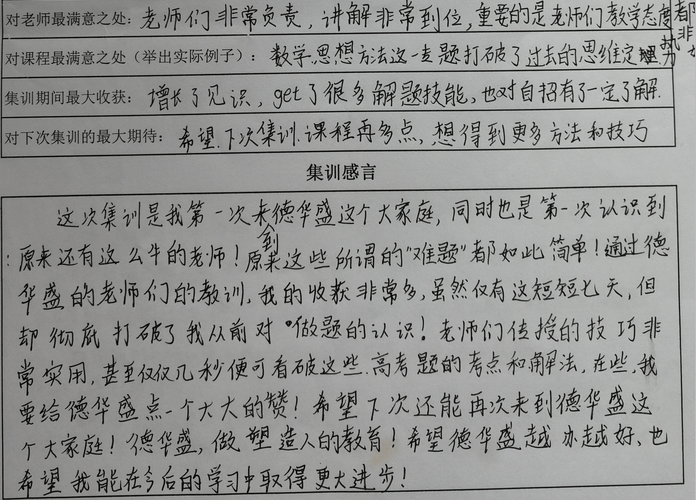 对老师最满意之处：老师们非常负责，讲解非常到位，重要的是老师们教学态度都非
对课程最满意之处（举出实际例子）：数学思想方法这一专题打破了过去的思维定
集训期间最大收获：增长了见识，get了很多解题技能，也对自招有了一定了解.
对下次集训的最大期待：希望下次集训课程再多点，想得到更多方法和技巧
集训感言
这次集训是我第一次来到德华盛这个大家庭，同时也是第一次认识到
原来还有这么牛的老师！原来这些所谓的“难题”都如此简单！通过德
华盛的老师们的教训，我的收获非常多，虽然仅有这短短七天，但
却彻底打破了我从前对做题的认识！老师们传授的技巧非
常实用，甚至仅仅几秒便可看破这些高考题的考点和解法，在些，我
要给德华盛点一个大大的赞！希望下次还能再次来到德华盛这
个大家庭！德华盛，做塑造人的教育！希望德华盛越办越好、也
希望我能在今后的学习中取得更大进步！